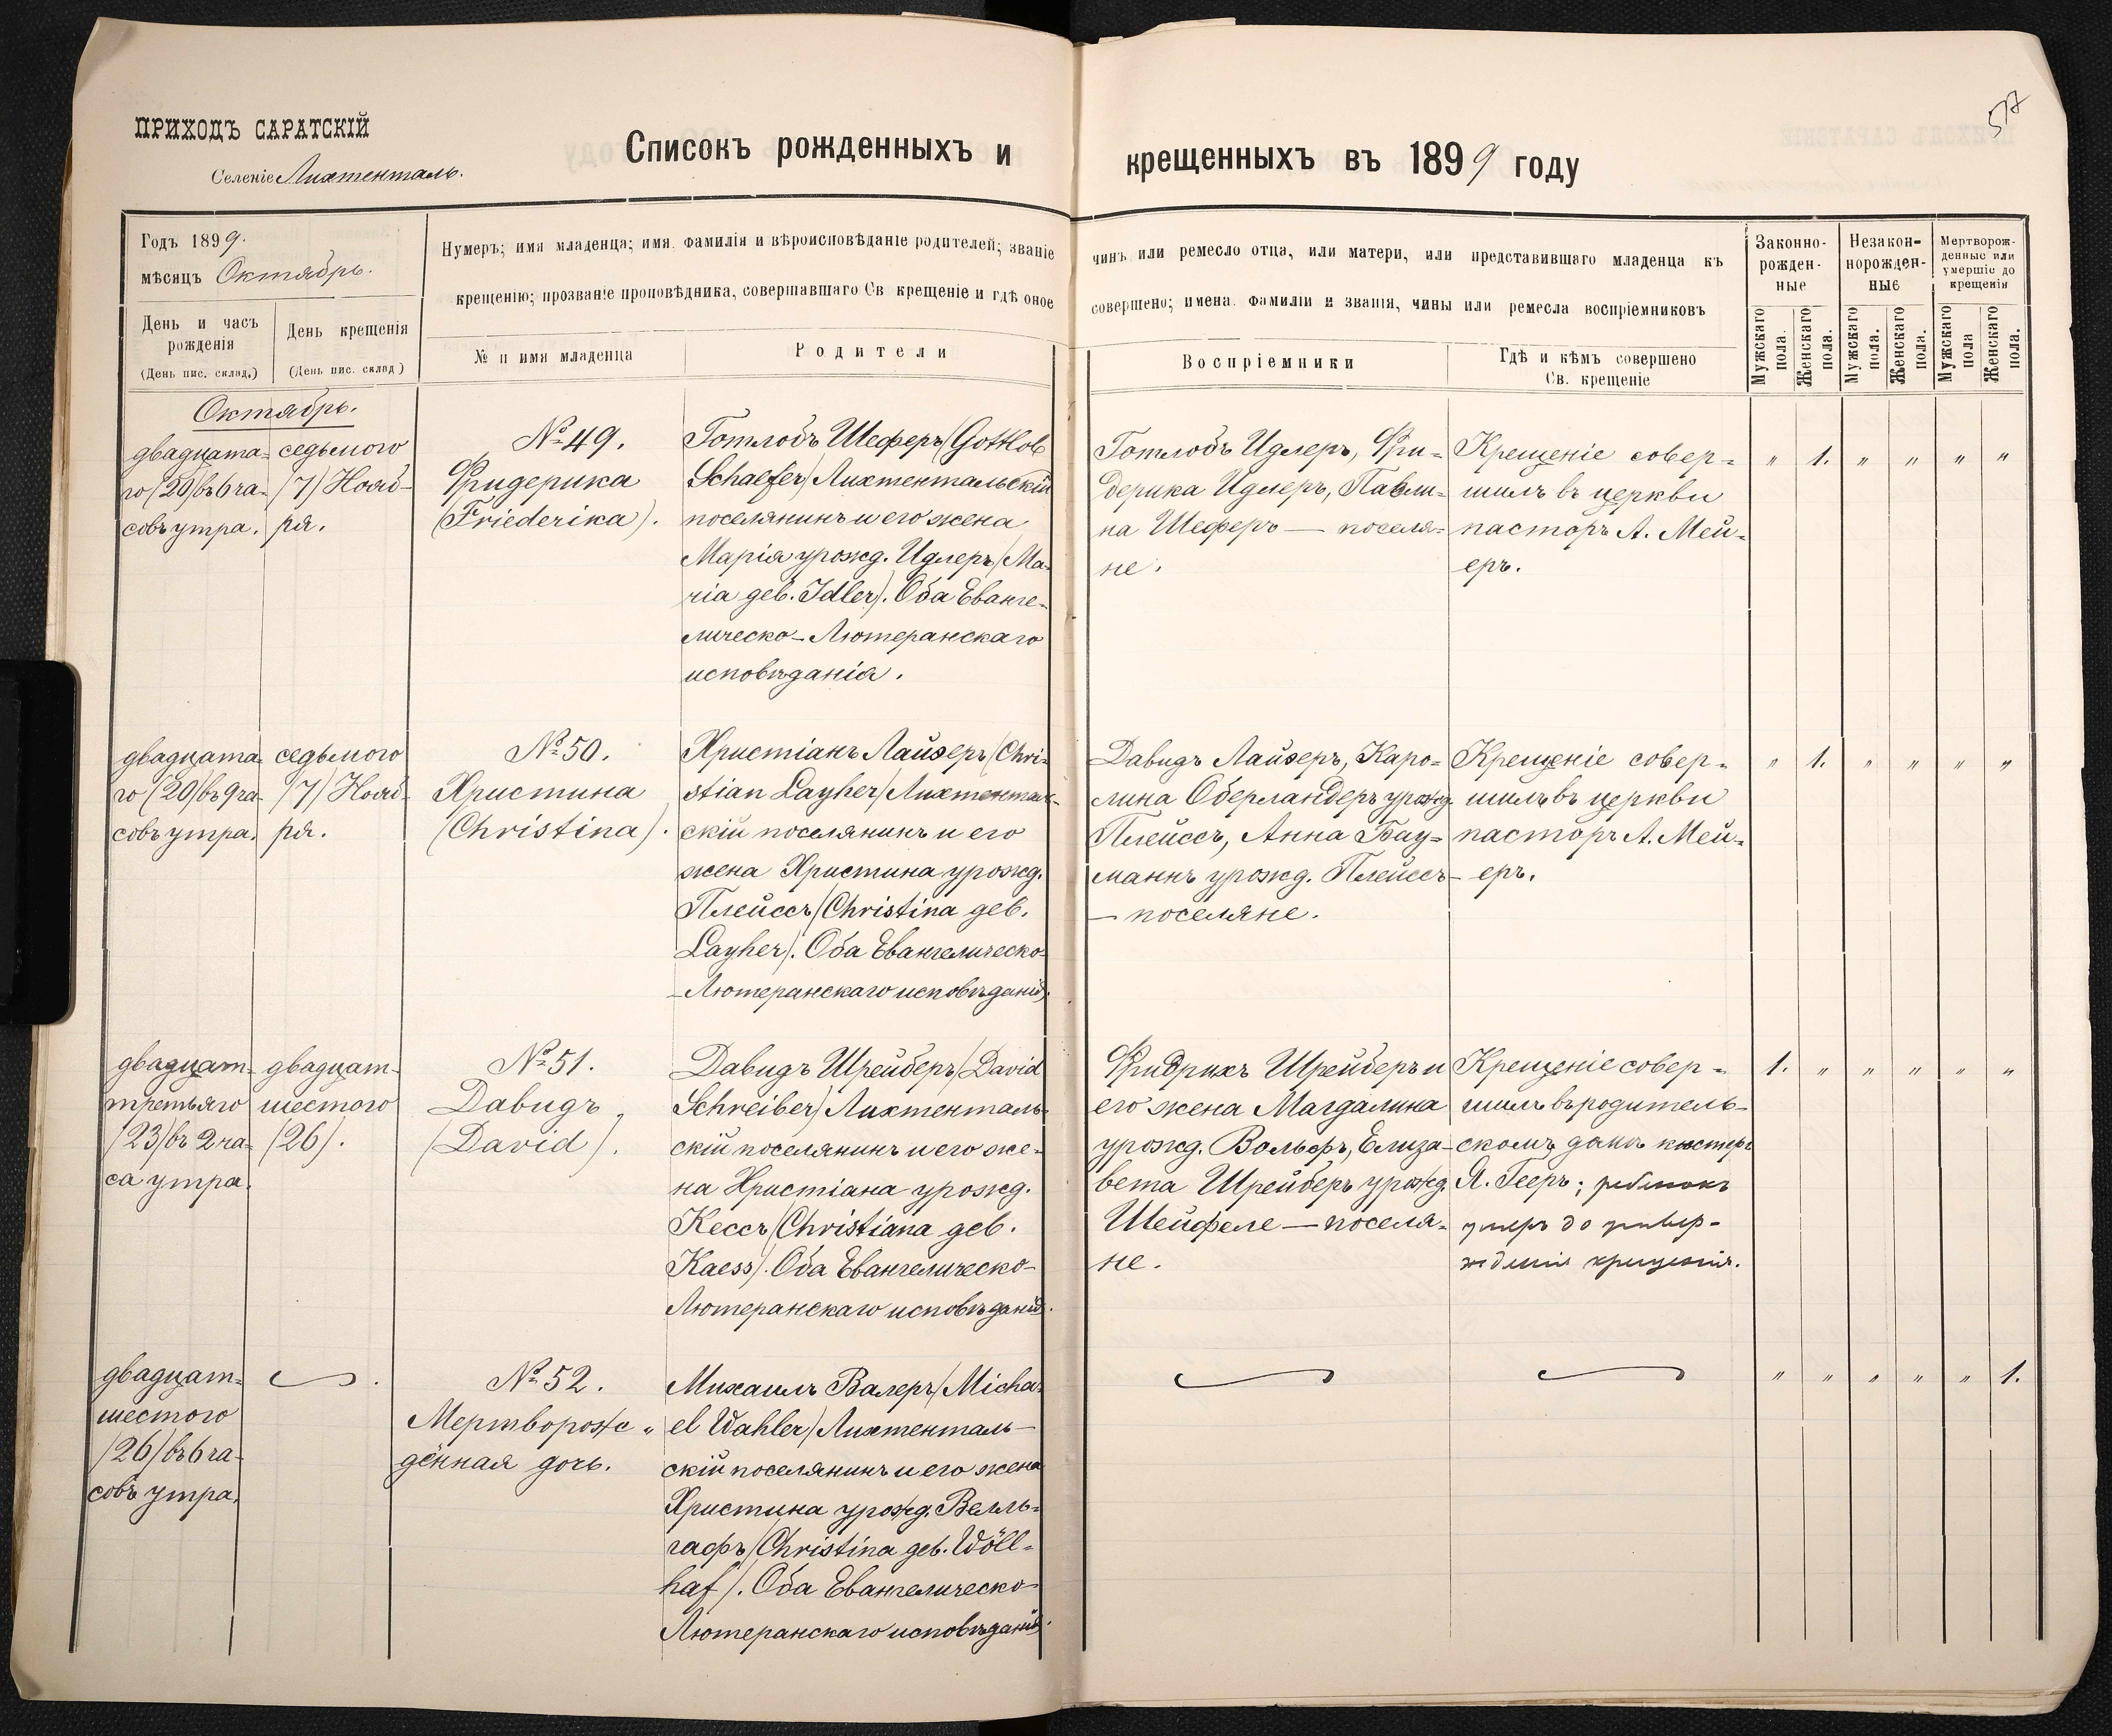 ПРИХОДЪ САРАТСКІЙ
Селеніе Лихтенталь.
Списокъ рожденныхъ и крещенныхъ въ 1899 году
57
Годъ 1899.
мѣсяцъ Октябрь.
День и часъ
рожденія
(День пис. склад.)
День крещенія
(День пис. склад)
Нумеръ; имя младенца; имя. фамилія и вѣроисповѣданіе родителей; званіе
крещенію; прозваніе проповѣдника, совершавшаго Св крещеніе и гдѣ оное
№ и имя младенца
Родители
чинъ или ремесло отца, или матери, или представившаго младенца къ
совершено; имена. фамиліи и званія, чины или ремесла воспріемниковъ
Воспріемники
Гдѣ и кѣмъ совершено
Св. крещеніе
Законно-
рожден-
ные
Незакон-
норожден-
ные
Мертворож-
денные или
умершіе до
крещенія
Мужскаго
пола.
Женскаго
пола.
Мужскаго
пола.
Женскаго
пола.
Мужскаго
пола
Женскаго
пола.
Октябрь.
двадцата-
го (20) въ 6 ча-
совъ утра.
седьмого
(7) Нояб-
ря.
№ 49.
Фридерика
(Friederika).
Готлобъ Шеферъ (Gottlob
Schaefer) Лихтентальскій
поселянинъ и его жена
Марія урожд. Идлеръ (Ma-
ria geb. Idler). Оба Еванге-
лическо-Лютеранскаго
исповѣданія.
Готлобъ Идлеръ, Фри-
дерика Идлеръ, Павли-
на Шеферъ — поселя-
не.
Крещеніе совер-
шилъ въ церкви
пасторъ А. Мей-
еръ.
" 1. " " " "
двадцата-
го (20) въ 9 ча-
совъ утра.
седьмого
(7) Нояб-
ря.
№ 50.
Христина
(Christina).
Христіанъ Лайеръ (Chri-
stian Layher) Лихтенталь-
скій поселянинъ и его
жена Христина урожд.
Плейссъ (Christina geb.
Layher). Оба Евангелическо-
-Лютеранскаго исповѣданія.
Давидъ Лайеръ, Каро-
лина Оберландеръ урожд.
Плейссъ, Анна Бау-
маннъ урожд. Плейссъ-
— поселяне.
Крещеніе совер-
шилъ въ церкви
пасторъ А. Мей-
еръ.
" 1. " " " "
двадцат-
третьяго
(23) въ 2 ча-
са утра.
двадцат-
шестого
(26).
№ 51.
Давидъ
(David).
Давидъ Шрейберъ (David
Schreiber) Лихтенталь-
скій поселянинъ и его же-
на Христіана урожд.
Кессъ (Christiana geb.
Kaess). Оба Евангелическо-
Лютеранскаго исповѣданія.
Фридрихъ Шрейберъ и
его жена Магдалина
урожд. Вольфъ, Елиза-
вета Шрейберъ урожд.
Шейфеле — поселя-
не.
Крещеніе совер-
шилъ въ родитель-
скомъ домѣ кюстеръ
Я. Гееръ; ребенокъ
умеръ до утвер-
жденія крещенія.
1. " " " " "
двадцат-
шестого
(26) въ 6 ча-
совъ утра.
№ 52.
Мертворож-
дённая дочь.
Михаилъ Валеръ (Micha-
el Wahler) Лихтенталь-
скій поселянинъ и его жена
Христина урожд. Велль-
гафъ (Christina geb. Wöll-
haf). Оба Евангелическо-
Лютеранскаго исповѣданія.
" " " " " 1.